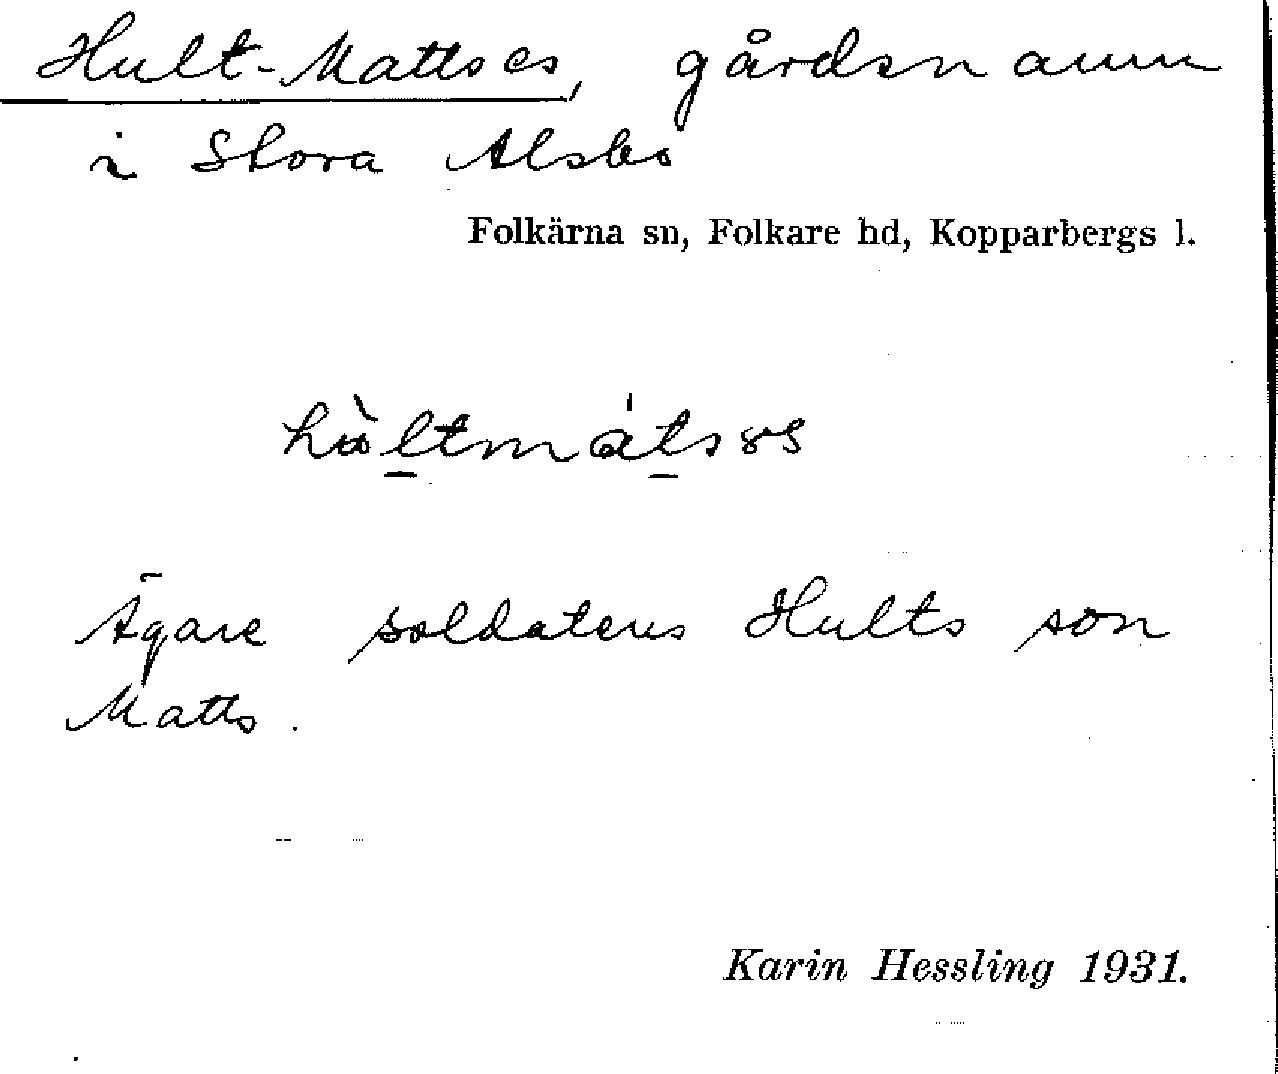 Hult-Mattses, gårdsnamn
i Stora Alsbo
Folkärna sn, Folkare hd, Kopparbergs l.
Ägare soldatens Hults son
Matts.
Karin Hessling 1931.